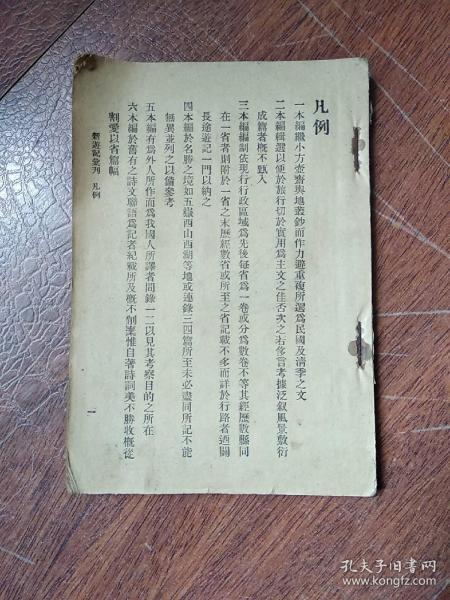 凡例
一本編繼小方壺齋輿地叢鈔而作力避重複所選爲民國及清季之文
二本編輯選以便於旅行切於實用爲主文之佳否次之若侈言考據泛叙風景敷衍
成篇者概不甄入
三本編編制依現行行政區域爲先後每省爲一卷或分爲數卷不等其經歷數縣同
在一省者則附於一省之末歷經數省或所至之省記載不多而詳於行路者迺闢
長途遊記一門以納之
四本編於名勝之境如五嶽西山西湖等地或連錄三四篇所至未必盡同所記不能
無異並列之以備參考
五本編有爲外人所作而爲我國人所譯者間錄一二以見其考察目的之所在
六本編於舊有之詩文聯語爲記者紀載所及概不刪棄惟自著詩詞美不勝收概從
割愛以省篇幅
新遊記彙刊 凡例
一
孔夫子旧书网
www.kongfz.com